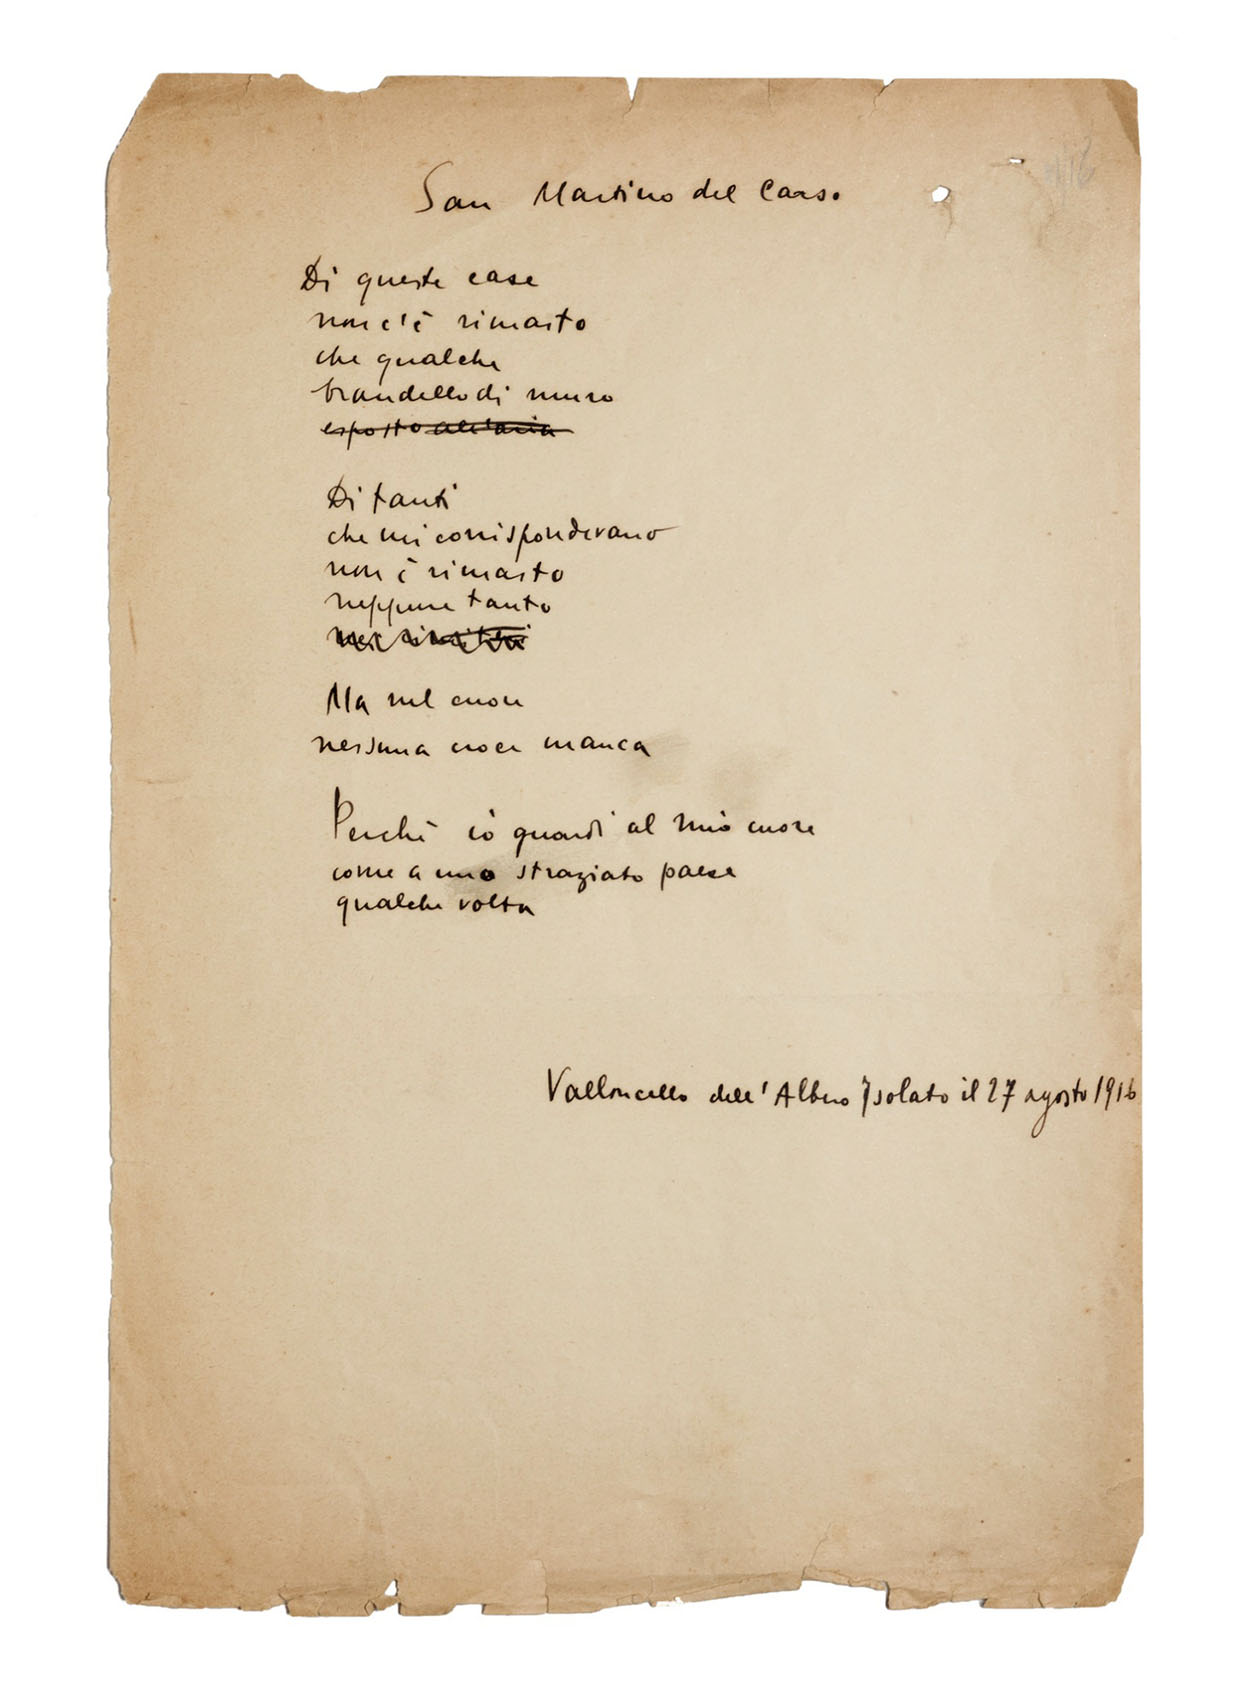 San Martino del Carso
Di queste case
non c'è rimasto
che qualche
brandello di muro
esposto all'aria
Di tanti
che mi corrispondevano
non è rimasto
neppure tanto
nei cimiteri
Ma nel cuore
nessuna croce manca
Perchè io guardi al mio cuore
come a uno straziato paese
qualche volta
Valloncello dell'Albero Isolato il 27 agosto 1916